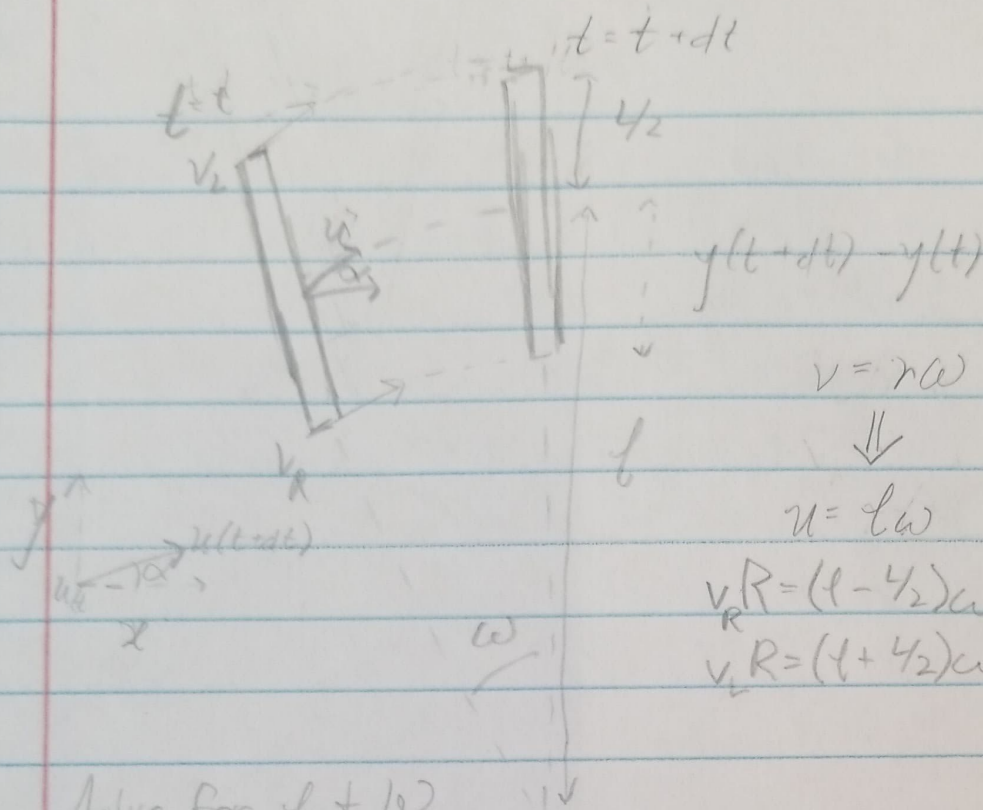 t = t + dt
t = t
L/2
V_L
u
α
y(t + dt) - y(t)
v = rω
⇓
V_R
l
u = lω
y
u(t+dt)
α
x
ω
v_R R = (l - L/2)ω
v_L R = (l + L/2)ω